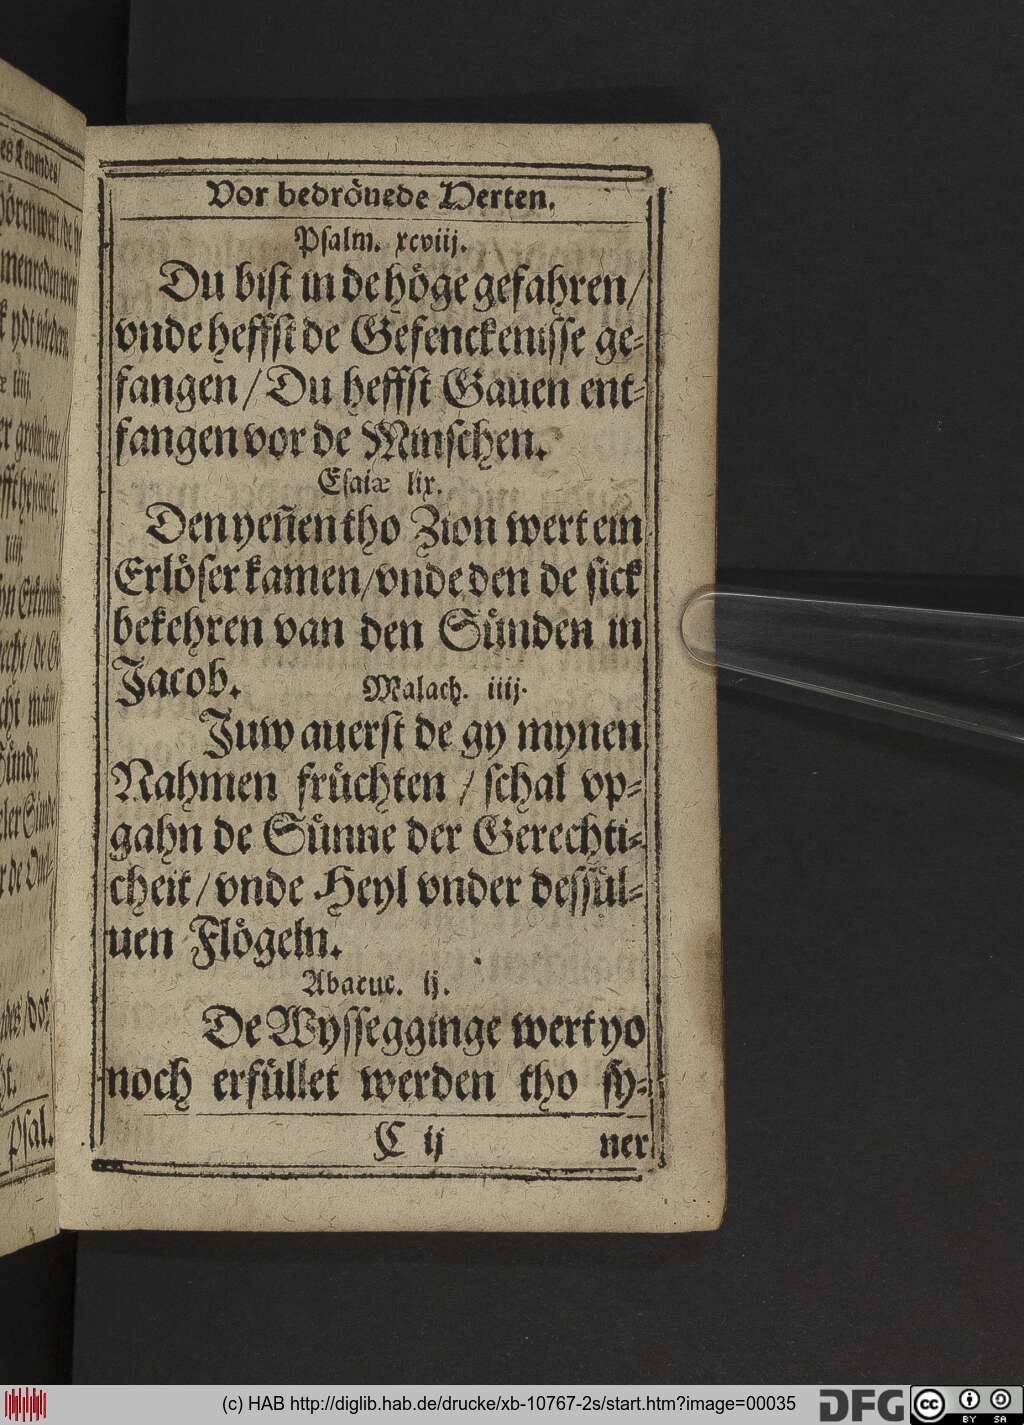 Vor bedröuede Herten.
Psalm. xcviij.
Du bist in de höge gefahren/
vnde heffst de Gefenckenisse ge-
fangen/Du heffst Gauen ent-
fangen vor de Minschen.
Esaiæ lix.
Den yeñen tho Zion wert ein
Erlöser kamen/vnde den de sick
bekehren van den Sünden in
Jacob. Malach. iiij.
Juw auerst de gy mynen
Nahmen früchten / schal vp-
gahn de Sünne der Gerechti-
cheit/vnde Heyl vnder dessül-
uen Flögeln.
Abacuc. ij.
De Wyssegginge wert yo
noch erfüllet werden tho sy-
C ij ner
(c) HAB http://diglib.hab.de/drucke/xb-10767-2s/start.htm?image=00035
DFG
cc BY SA